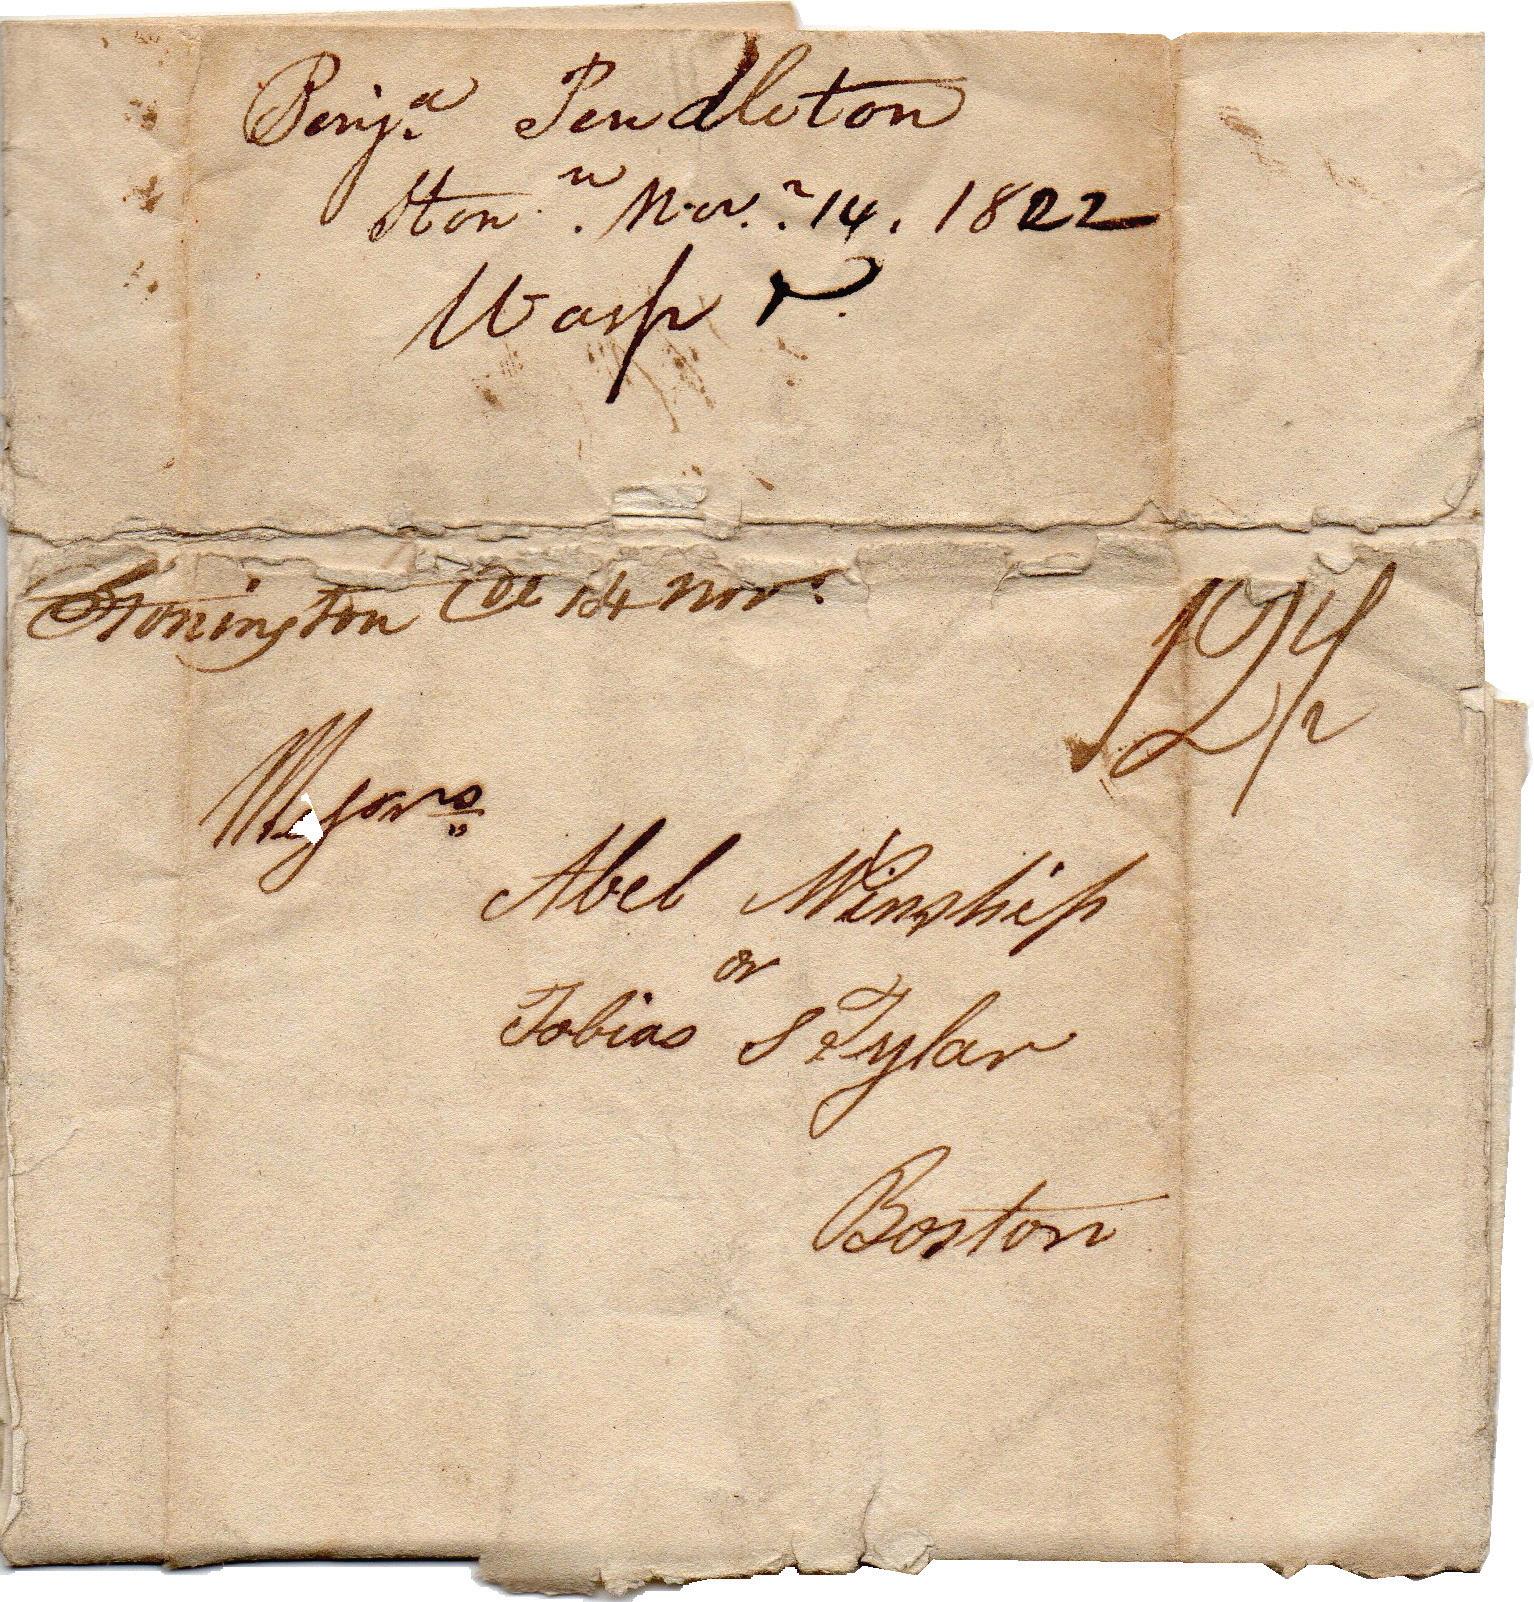 Benj.a Pendleton
Ston.n Nov.r 14. 1822
Wasp
Stonington Ct 14 Nov.r
12 1/2
Messrs
Abel Winship
or
Tobias S Tylar
Boston